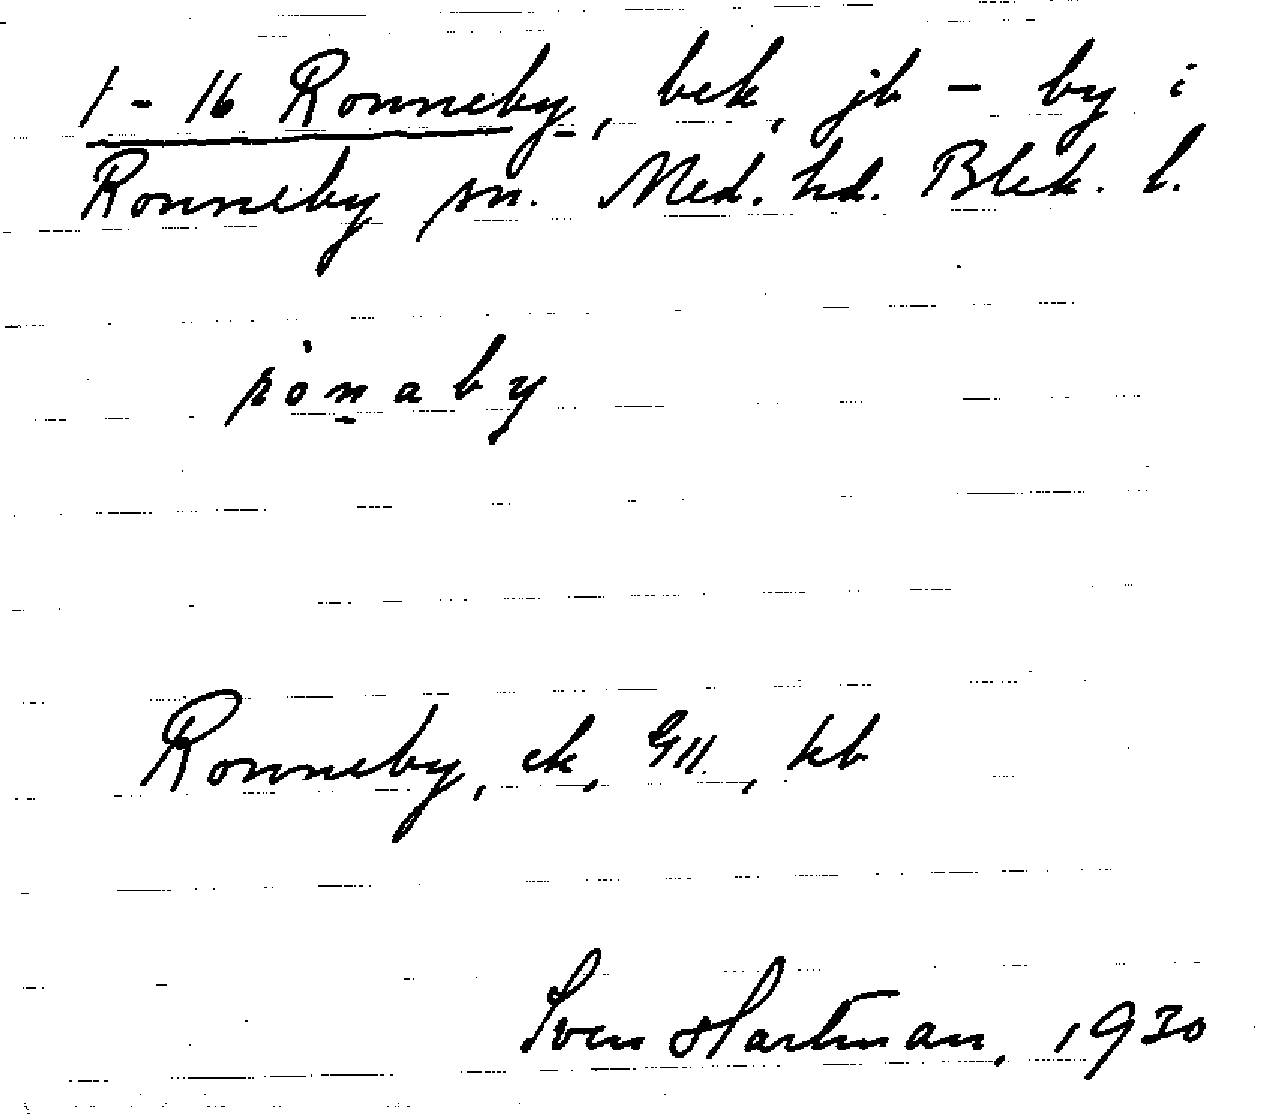 1-16 Ronneby, bek, jb - by i
Ronneby sn. Med. hd. Blek. l.
rònaby
Ronneby, ek, GII, kb
Sven Hartman, 1930